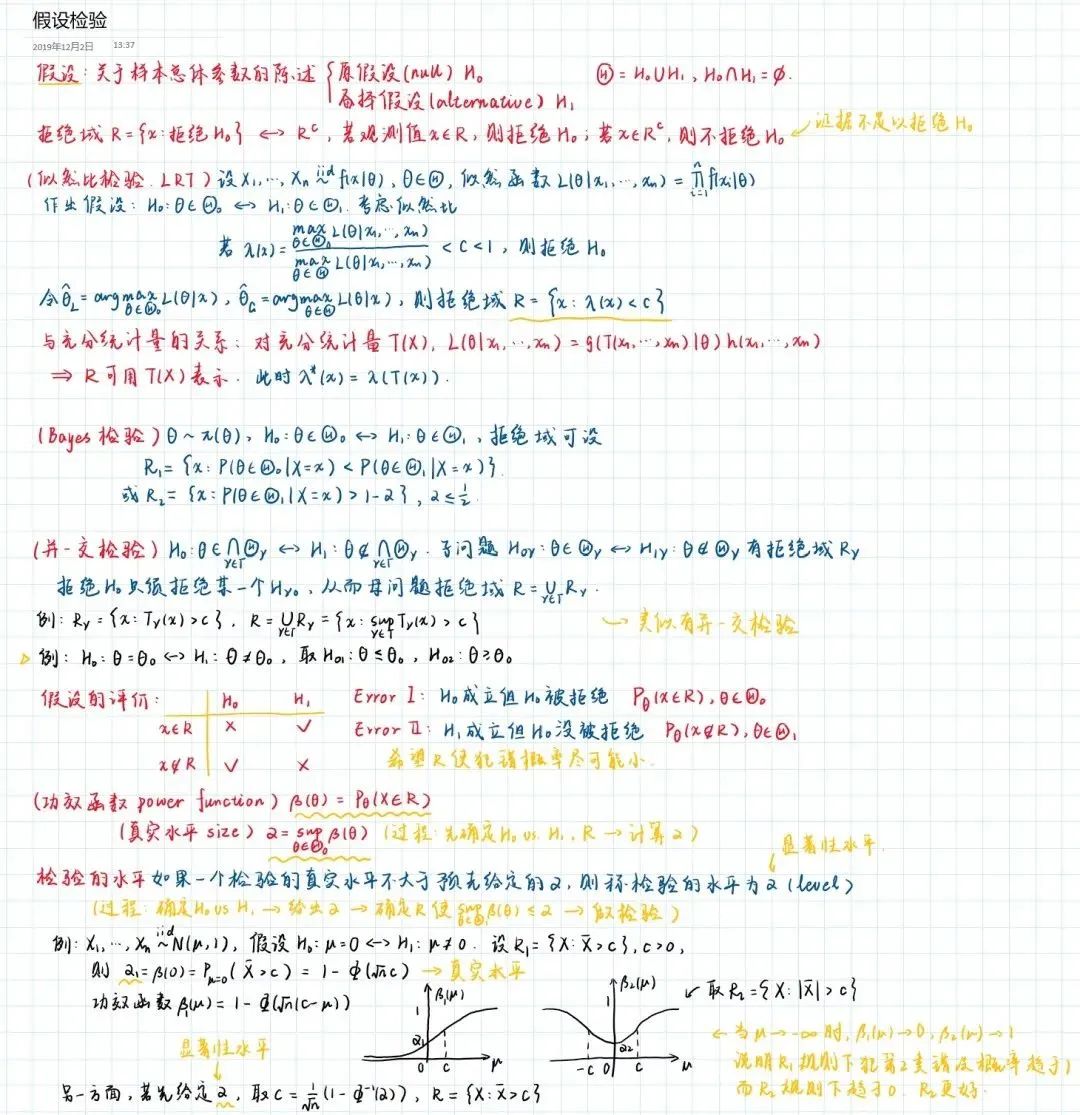 假设检验
2019年12月2日 13:37
假设：关于样本总体参数的陈述 { 原假设(null) H₀ Ⓗ = H₀∪H₁, H₀∩H₁=∅.
备择假设(alternative) H₁
拒绝域 R={x:拒绝H₀} ↔ Rᶜ, 若观测值x∈R, 则拒绝H₀; 若x∈Rᶜ, 则不拒绝H₀ ↙ 证据不足以拒绝H₀
(似然比检验 LRT) 设X₁,⋯,Xₙ iid~ f(x|θ), θ∈Ⓗ, 似然函数 L(θ|x₁,⋯,xₙ) = ∏ⁿᵢ₌₁ f(xᵢ|θ)
作出假设: H₀:θ∈Ⓗ₀ ↔ H₁:θ∈Ⓗ₁. 考虑似然比
若 λ(x) = max_{θ∈Ⓗ₀} L(θ|x₁,⋯,xₙ) / max_{θ∈Ⓗ} L(θ|x₁,⋯,xₙ) < C < 1, 则拒绝H₀
令 θ̂_L = argmax_{θ∈Ⓗ₀} L(θ|x), θ̂_G = argmax_{θ∈Ⓗ} L(θ|x), 则拒绝域 R = {x: λ(x)<c}
与充分统计量的关系: 对充分统计量T(X), L(θ|x₁,⋯,xₙ) = g(T(x₁,⋯,xₙ)|θ) h(x₁,⋯,xₙ)
⇒ R可用T(X)表示. 此时 λ*(x) = λ(T(x)).
(Bayes 检验) θ~π(θ), H₀:θ∈Ⓗ₀ ↔ H₁:θ∈Ⓗ₁, 拒绝域可设
R₁={x: P(θ∈Ⓗ₀|X=x) < P(θ∈Ⓗ₁|X=x)}.
或 R₂= {x: P(θ∈Ⓗ₁|X=x) > 1-α}, α≤1/2.
(并-交检验) H₀:θ∈⋂_{γ∈Γ}Ⓗ_γ ↔ H₁:θ∉⋂_{γ∈Γ}Ⓗ_γ. 子问题 H₀γ:θ∈Ⓗ_γ ↔ H₁γ:θ∉Ⓗ_γ 有拒绝域 R_γ
拒绝H₀只须拒绝某一个H_γ₀, 从而母问题拒绝域 R=⋃_{γ∈Γ}R_γ.
例: R_γ={x:T_γ(x)>c}, R=⋃_{γ∈Γ}R_γ={x: sup_{γ∈Γ}T_γ(x)>c} ↝ 类似有并-交检验
▷ 例: H₀:θ=θ₀ ↔ H₁:θ≠θ₀, 取H₀₁:θ≤θ₀, H₀₂:θ≥θ₀
假设的评价: H₀ H₁ Error I: H₀成立但H₀被拒绝 P_θ(x∈R), θ∈Ⓗ₀
x∈R × √ Error II: H₁成立但H₀没被拒绝 P_θ(x∉R), θ∈Ⓗ₁
x∉R √ × 希望R使犯错概率尽可能小.
(功效函数 power function) β(θ) = P_θ(X∈R)
(真实水平 size) α= sup_{θ∈Ⓗ₀} β(θ) (过程: 先确定H₀ vs. H₁, R → 计算α)
显著性水平.
检验的水平 如果一个检验的真实水平不大于预先给定的α, 则称检验的水平为α (level)
(过程: 确定H₀ vs H₁ → 给出α → 确定R使 sup_{θ∈Ⓗ₀} β(θ)≤α → 做检验)
例: X₁,⋯,Xₙ iid~ N(μ,1), 假设H₀: μ=0 ↔ H₁: μ≠0. 设R₁={X: X̄>c}, c>0,
则 α₁=β(0)=P_{μ=0}(X̄>c) = 1-Φ(√n c) → 真实水平
功效函数 β₁(μ) = 1-Φ(√n(c-μ))
β₁(μ) 1 α₁ 0 c μ
β₂(μ) 1 α₂ -c 0 c μ
↙ 取R₂={X: |X̄|>c}
← 当μ→-∞时, β₁(μ)→0, β₂(μ)→1
说明R₁规则下犯第2类错误概率趋于1
而R₂规则下趋于0. R₂更好.
显著性水平
另一方面, 若先给定α, 取c = 1/√n (1-Φ⁻¹(α)), R={X: X̄>c}